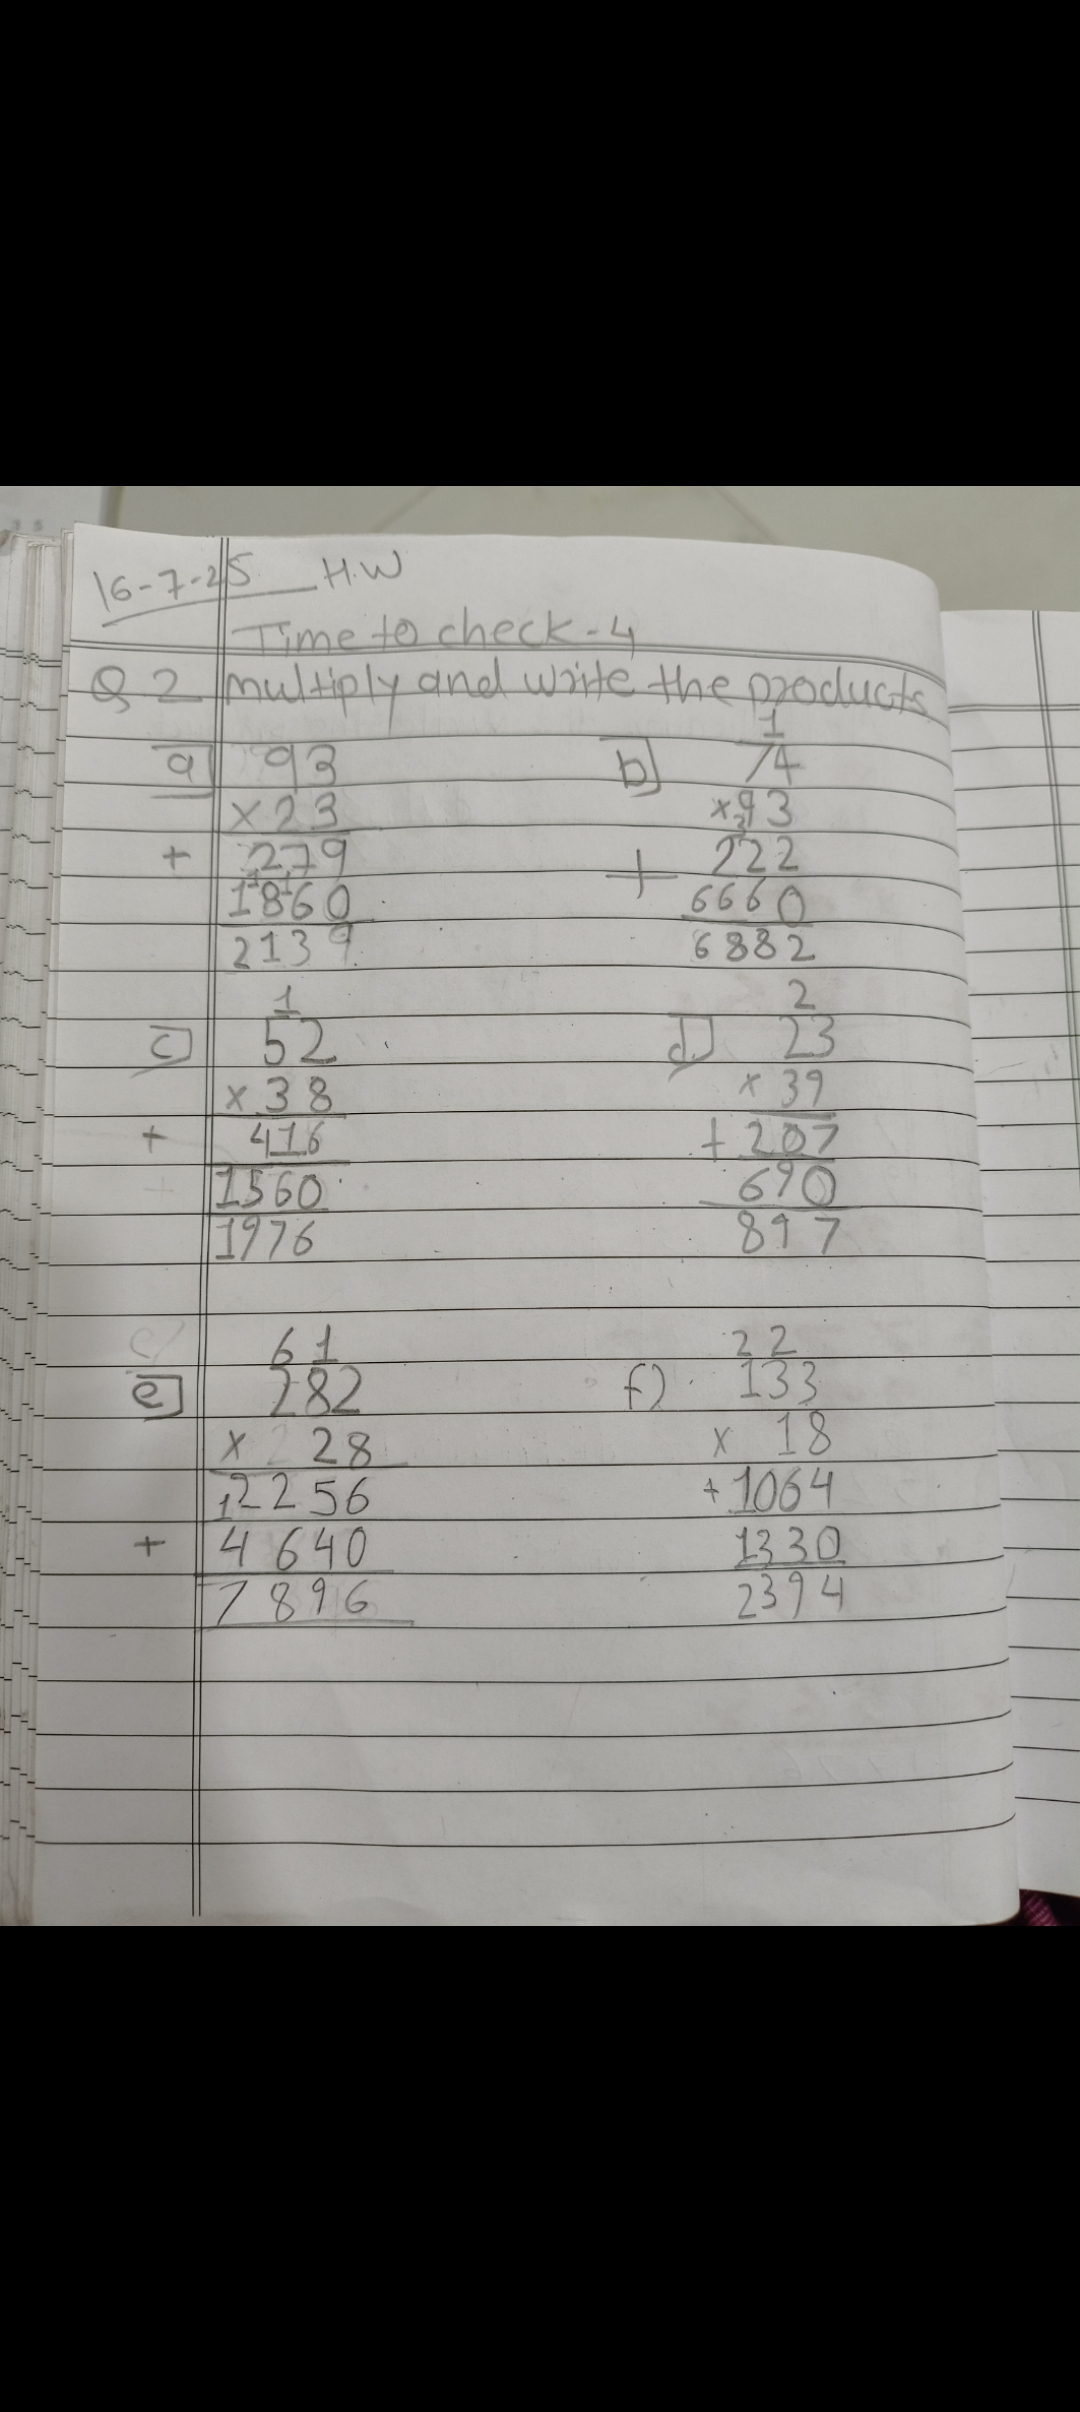 16-7-25 H.W
Time to check-4
Q 2 multiply and write the products
a] 93
× 23
+ 279
11
1860
2139
1
b] 74
× 93
2
+ 222
6660
6882
1
c] 52
× 38
+ 416
1560
1976
2
d] 23
× 39
+ 207
690
897
6 1
e] 282
× 28
2256
1
+ 4640
7896
2 2
f) 133
× 18
+ 1064
1330
2394